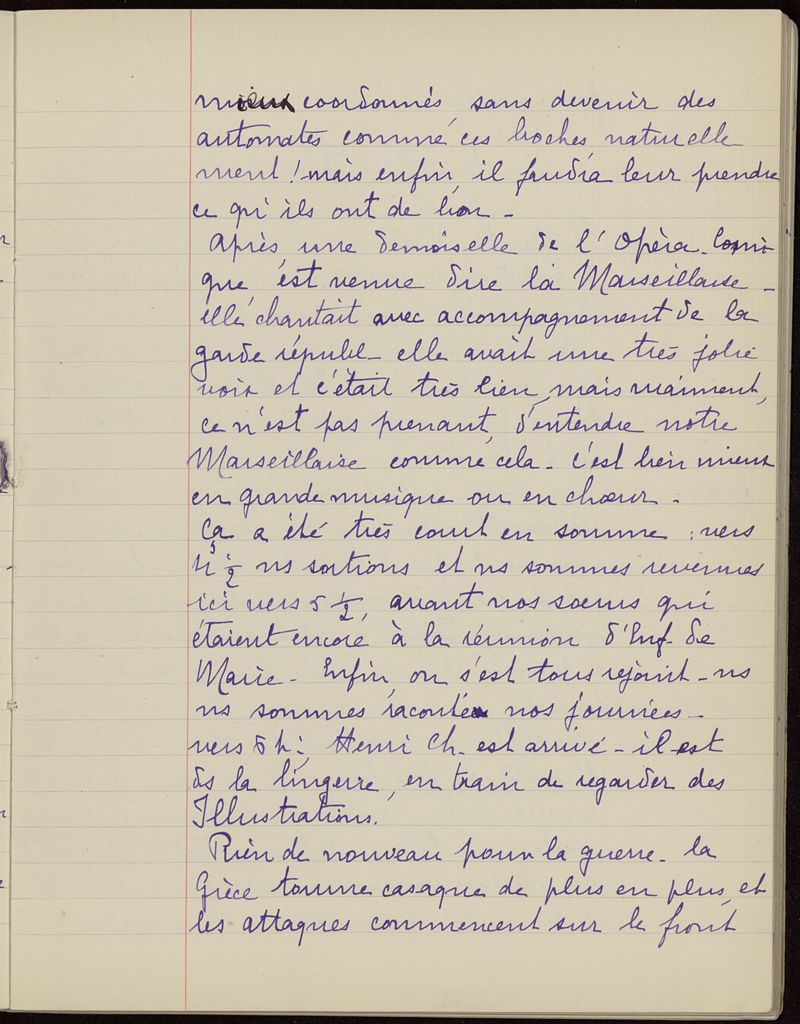 mieux coordonnés, sans devenir des
automates comme ces boches naturelle
ment ! mais enfin, il faudra leur prendre
ce qu'ils ont de bon -
Après, une demoiselle de l'Opéra-Comi
que, est venue dire la Marseillaise -
elle chantait avec accompagnement de la
garde républ- elle avait une très jolie
voix et c'était très bien, mais vraiment,
ce n'est pas prenant, d'entendre notre
Marseillaise comme cela - C'est bien mieux
en grande musique ou en chœur -
Ça a été très court en somme ; vers
h ½ ns sortions et ns sommes revenues
ici vers 5 ½, avant nos soeurs qui
étaient encore à la réunion d'Enf. de
Marie - Enfin, on s'est tous rejoint - ns
ns sommes raconté nos journées -
vers 6h ½, Henri Ch. est arrivé - il est
ds la lingerie, en train de regarder des
Illustrations.
Rien de nouveau pour la guerre - la
Grèce tourne casaque de plus en plus, et
les attaques commencent sur le front